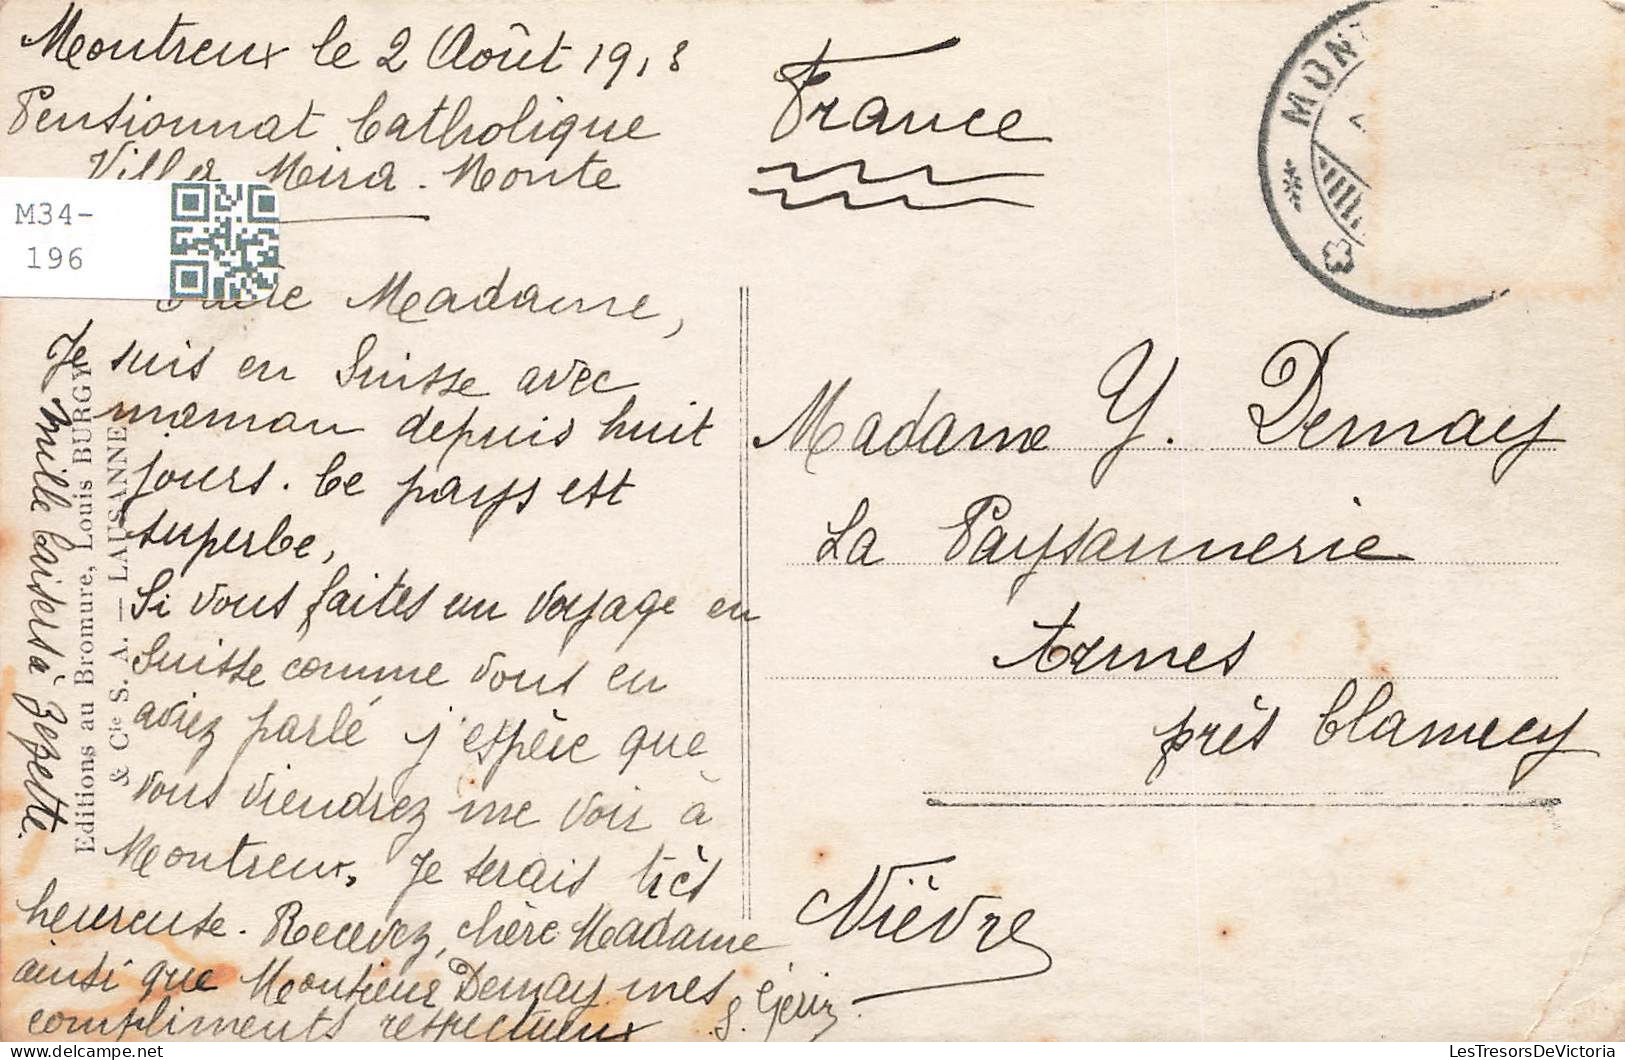 Montreux le 2 Août 1913
Pensionnat Catholique
Villa Mira-Monte
M34-
196
Madame,
Je suis en Suisse avec
maman depuis huit
jours. Ce pays est
superbe,
Si vous faites un voyage en
Suisse comme vous en
aviez parlé j'espère que
vous viendrez me voir à
Montreux. Je serais très
heureuse. Recevez, chère Madame
ainsi que Monsieur Demay mes
compliments respectueux
mille baisers à Zézette.
Editions au Bromure, Louis BURGY
& Cie S. A. — LAUSANNE
France
MONT
Madame Y. Demay
La Paysannerie
Armes
près Clamecy
Nièvre
LesTresorsDeVictoria